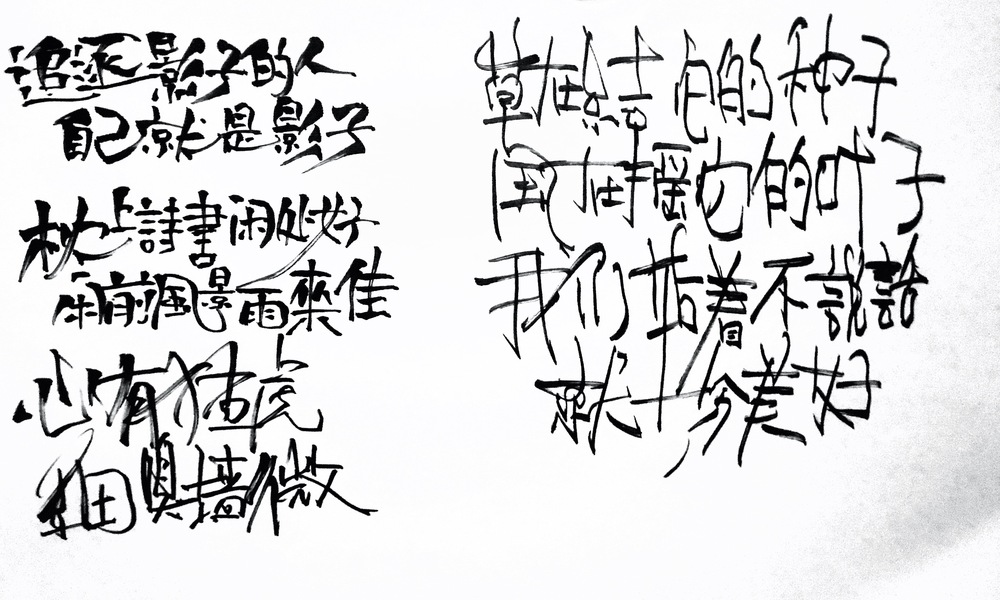 追逐影子的人
自己就是影子
枕上詩書闲处好
门前風景雨來佳
心有猛虎
细嗅蔷薇
草在结它的种子
风在摇它的叶子
我们站着不說話
就十分美好